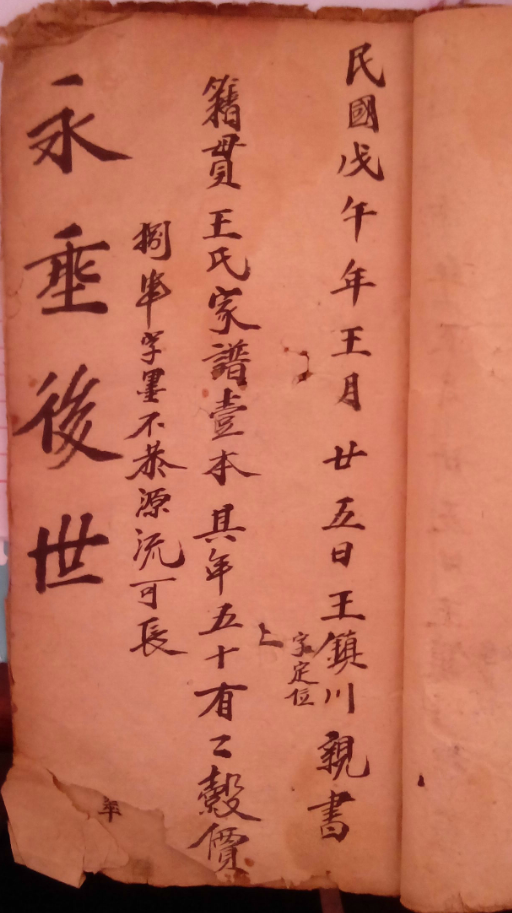 民國戊午年王月廿五日王鎮川親書
字定位
籍貫王氏家譜壹本其年五十有二穀價
捌串字墨不恭源流可長
永垂後世
年